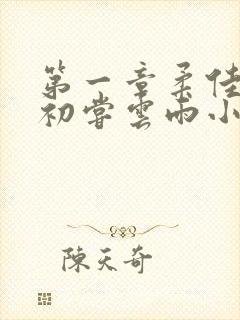 第一章柔佳
初嘗雲雨小
陳天奇